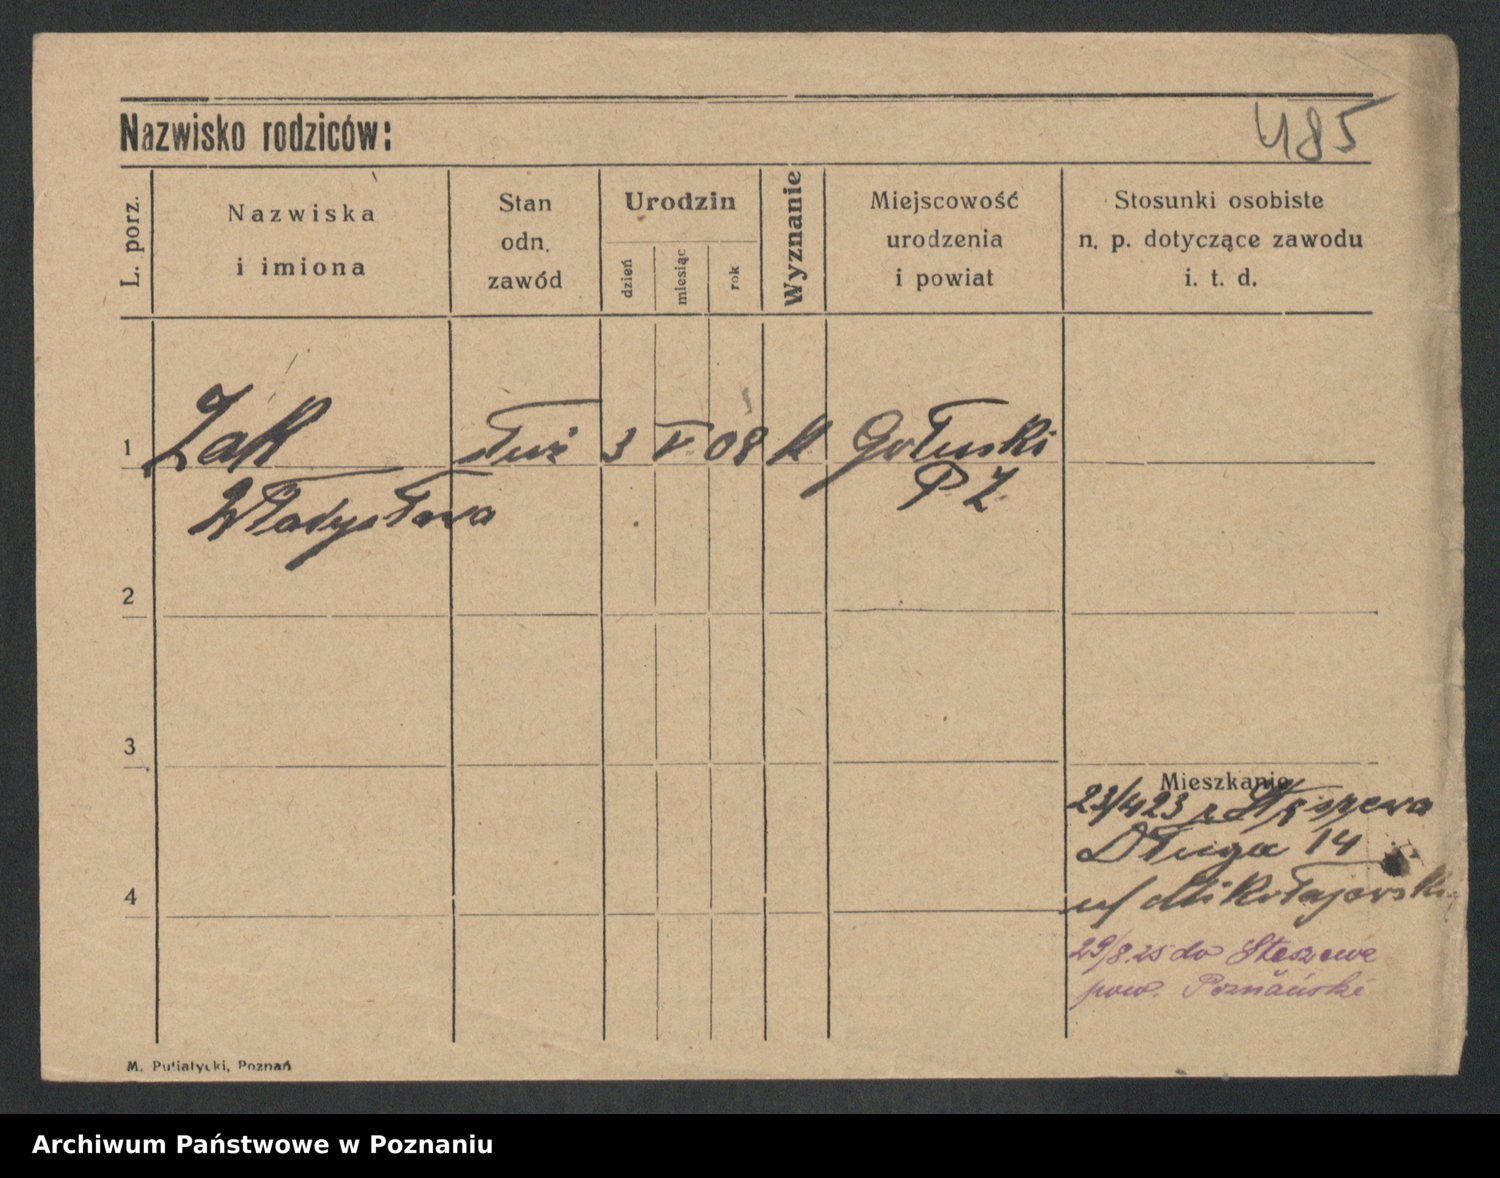 Nazwisko rodziców:
485
L. porz.
Nazwiska
i imiona
Stan
odn.
zawód
Urodzin
dzień
miesiąc
rok
Wyznanie
Miejscowość
urodzenia
i powiat
Stosunki osobiste
n. p. dotyczące zawodu
i. t. d.
1
Żak
służ
3 V. 08 k
Gołuski
Władysława
P. Z.
2
3
Mieszkanie
23/4 23 z Stęszewa
Długa 14
4
u/ Mikołajewski
29/8.25 do Stęszewa
pow. Poznański
M. Putiatycki, Poznań
Archiwum Państwowe w Poznaniu